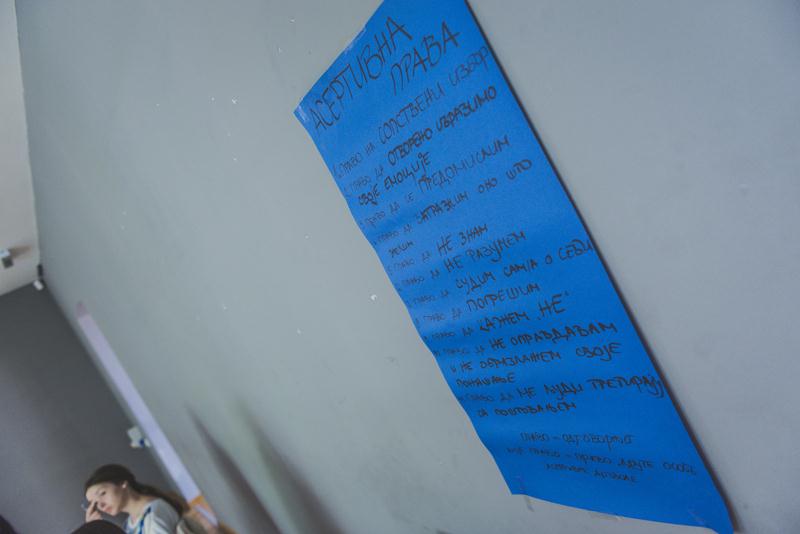 АСЕРТИВНА
ПРАВА
ПРАВО НА СОПСТВЕНИ ИЗБОР
ПРАВО ДА ОТВОРЕНО ИЗРАЗИМО
СВОЈЕ ЕМОЦИЈЕ
ПРАВО ДА СЕ ПРЕДОМИСЛИМ
ПРАВО ДА ЗАТРАЖИМ ОНО ШТО
ЖЕЛИМ
ПРАВО ДА НЕ ЗНАМ
ПРАВО ДА НЕ РАЗУМЕМ
ПРАВО ДА СУДИМ САМ/А О СЕБИ
ПРАВО ДА ПОГРЕШИМ
ПРАВО ДА КАЖЕМ „НЕ"
ПРАВО ДА НЕ ОПРАВДАВАМ
И НЕ ОБРАЗЛАЖЕМ СВОЈЕ
ПОНАШАЊЕ
ПРАВО ДА МЕ ЉУДИ ТРЕТИРАЈУ
СА ПОШТОВАЊЕМ
ПРАВО – ОДГОВОРНО
ПРАВО – ПРАВО ДРУГЕ ОСОБЕ